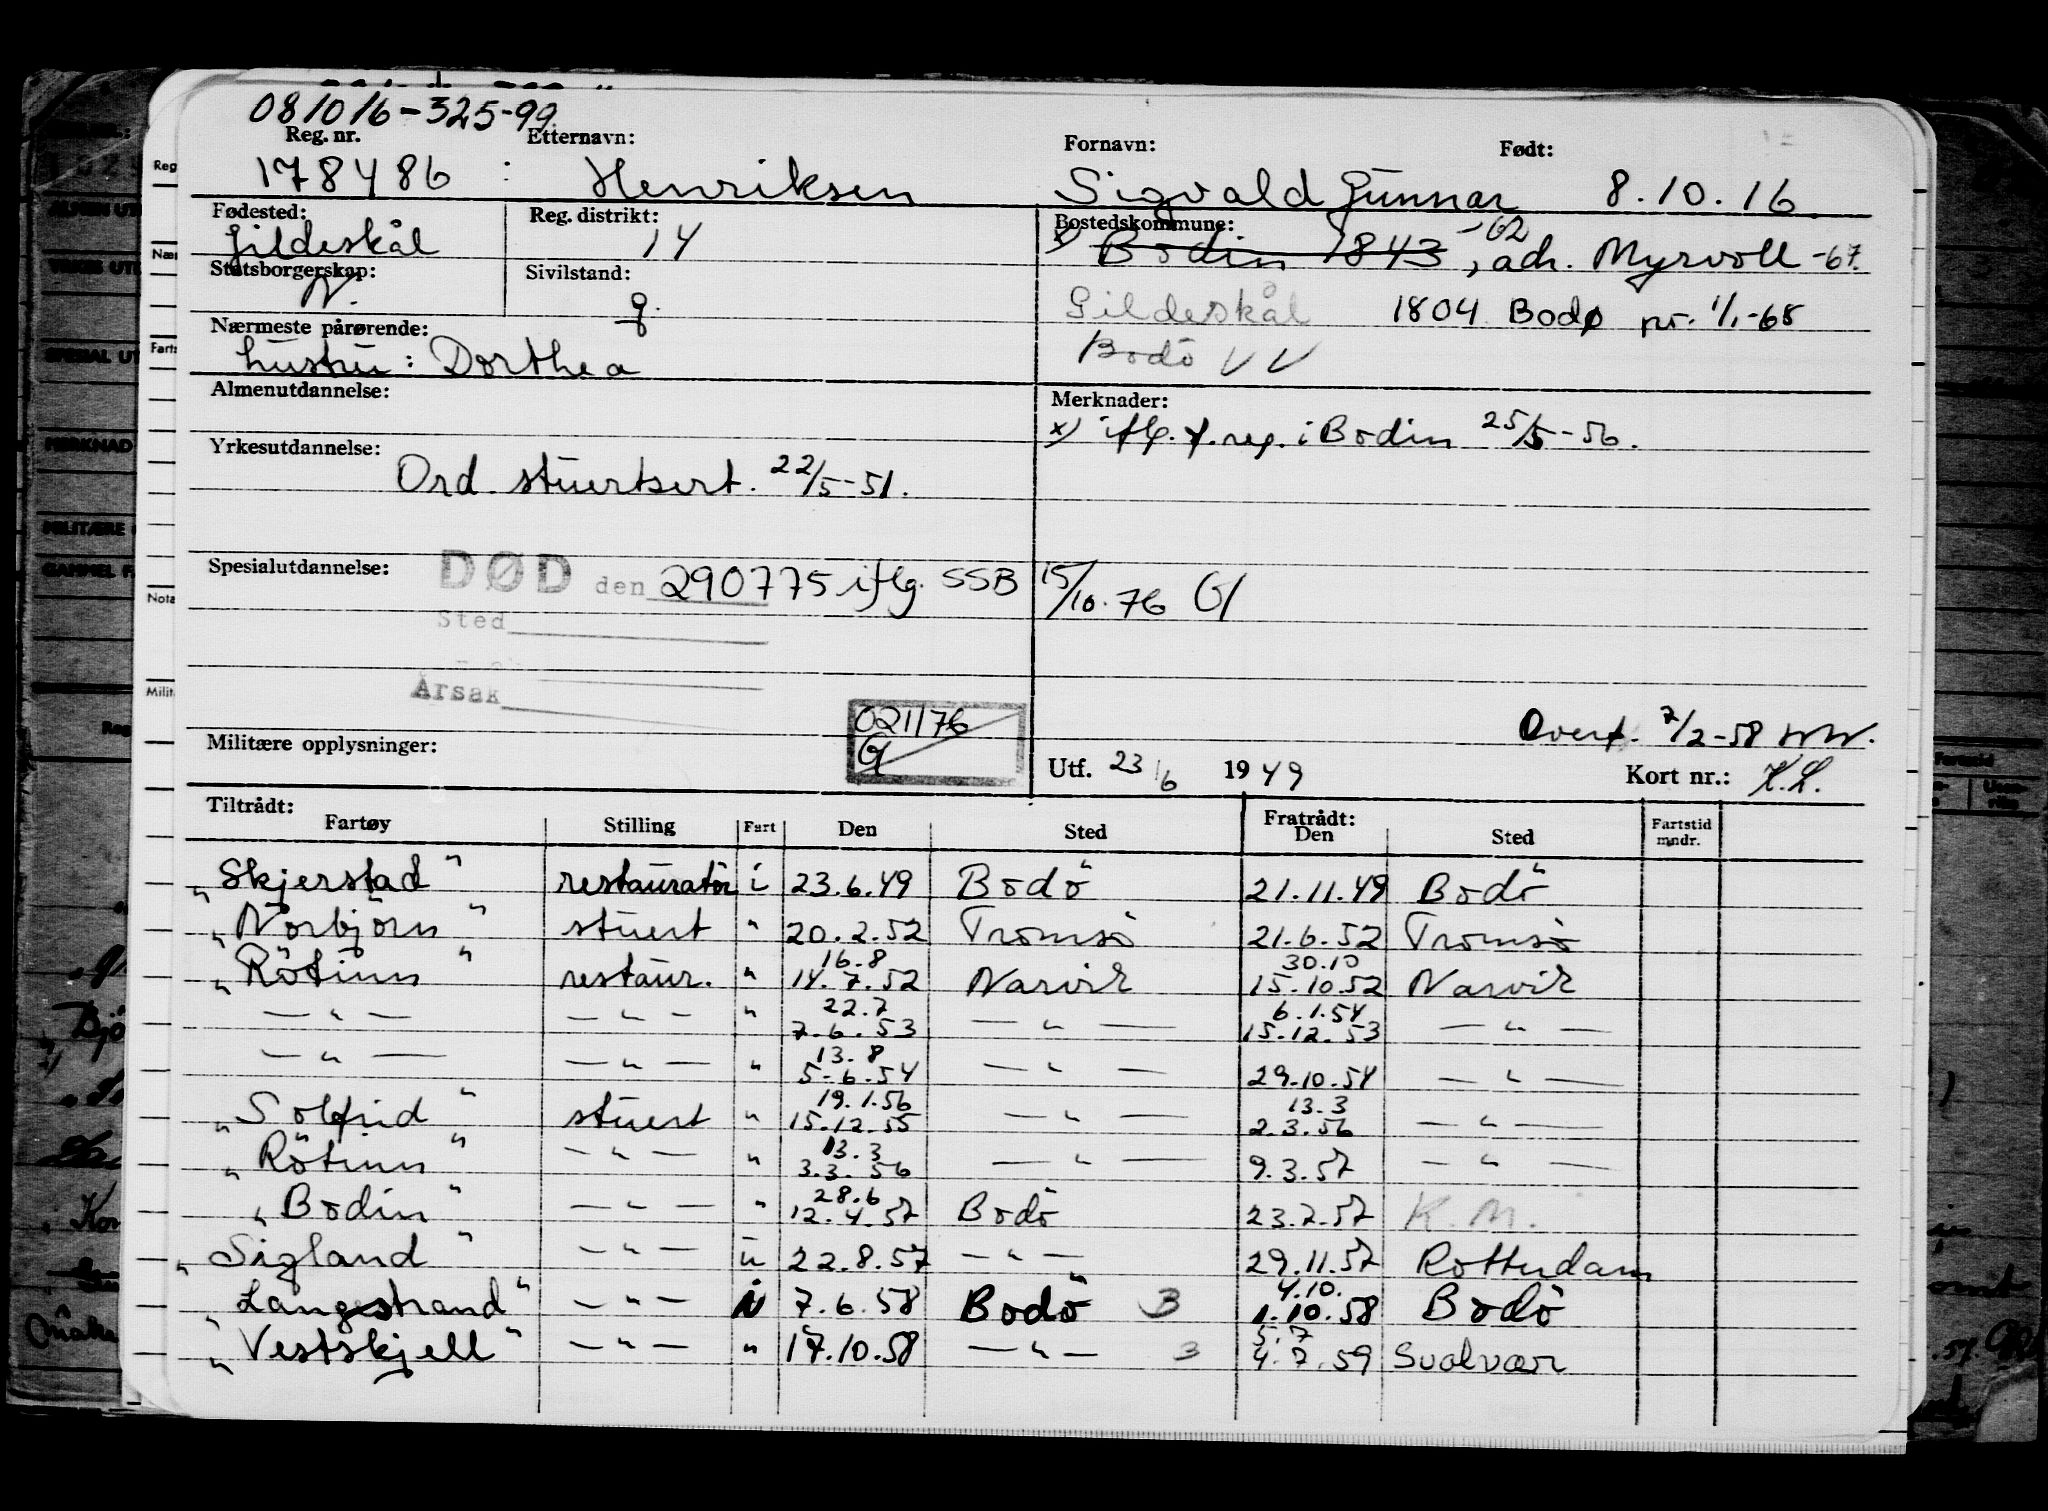 081016-325-99
Reg. nr. Etternavn: Fornavn: Født:
178486 : Henriksen Sigvald Gunnar 8.10.16
Fødested: Reg. distrikt: Bostedskommune:
Gildeskål 14 x) Bodin 1843 -62, adr. Myrvoll -67.
Statsborgerskap: Sivilstand:
N. g. Gildeskål 1804 Bodø pr. 1/1-68
Nærmeste pårørende: Bodö V V
hustru: Dorthea
Almenutdannelse: Merknader:
x) iflg. f.reg. i Bodin 25/5-56.
Yrkesutdannelse:
Ord. stuertsert. 22/5-51.
Spesialutdannelse: DØD den 290775 iflg. SSB 15/10.76 G
Sted
Årsak
021176
G
Overf. 7/2-58 WW.
Militære opplysninger: Utf. 23/6 1949 Kort nr.: K.L.
Tiltrådt: Fratrådt:
Fartøy Stilling Fart Den Sted Den Sted Fartstid mndr.
„Skjerstad" restauratör i 23.6.49 Bodö 21.11.49 Bodö
„Norbjörn" stuert " 20.2.52 Tromsö 21.6.52 Tromsö
16.8 30.10
„Rötinn" restaur. " 14.7.52 Narvik 15.10.52 Narvik
22.7 6.1.54
— " — — " — " 7.6.53 — " — 15.12.53 — " —
13.8
— " — — " — " 5-6.54 — " — 29.10.54 — " —
19.1.56 13.3
„Solfrid" stuert " 15.12.55 — " — 2.3.56 — " —
13.3
„Rötinn" — " — " 3.3.56 — " — 9.3.57 — " —
28.6
„Bodin" — " — " 12.4.57 Bodö 23.7.57 K.M.
„Sigland" — " — u 22.8.57 — " — 29.11.57 Rotterdam
4.10.
„Langstrand" — " — i 7.6.58 Bodö 3 1.10.58 Bodö
5.7
„Vestskjell" — " — " 17.10.58 — " — 3 4.7.59 Svolvær